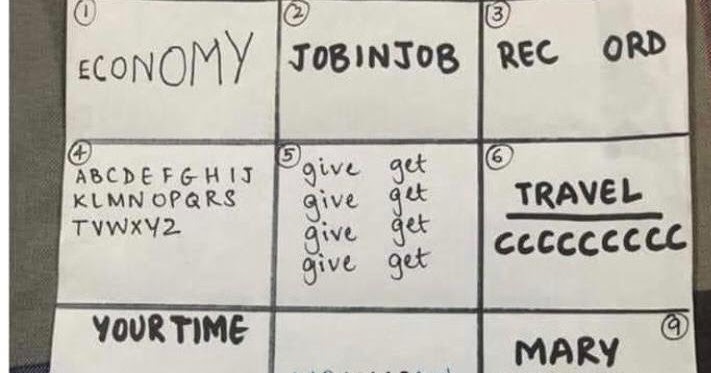 ①
ECONOMY
②
JOBINJOB
③
REC ORD
④
ABCDEFGHIJ
KLMNOPQRS
TVWXYZ
⑤
give get
give get
give get
give get
⑥
TRAVEL
CCCCCCCCC
YOUR TIME
⑨
MARY